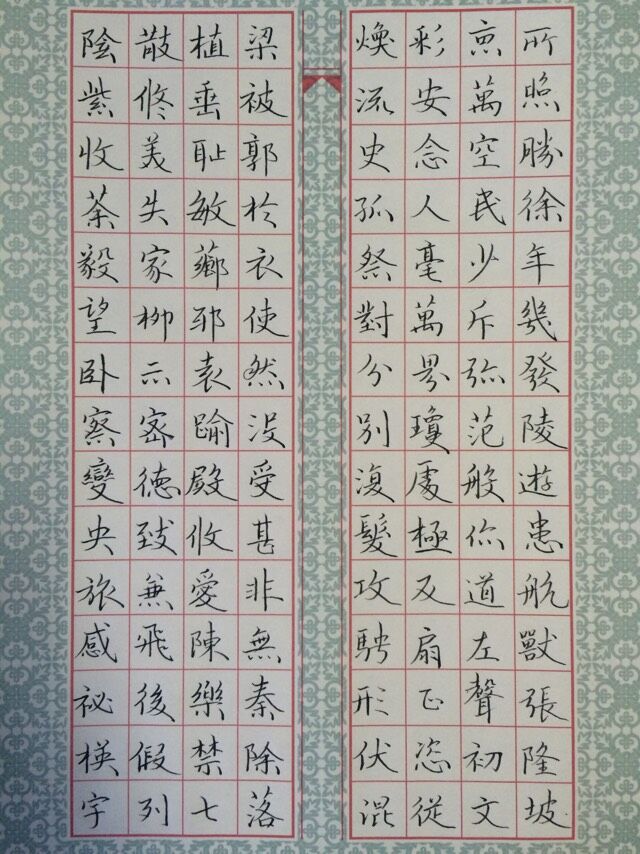 所照勝徐年幾發陵遊患航獸張隆坡
京萬空民少斥弥范般尒道左聲初文
彩安念人毫萬界瓊處極及扇正恣從
煥流史孤祭對分别復髮攻騁形伏混
梁被郭於衣使然没受甚非無秦除落
植垂耻敏薌耶袁踰殿收愛陳樂禁七
散修美失家柳示密德致兼飛後假列
陰紫收荼毅望卧察變央旅感祕楧字